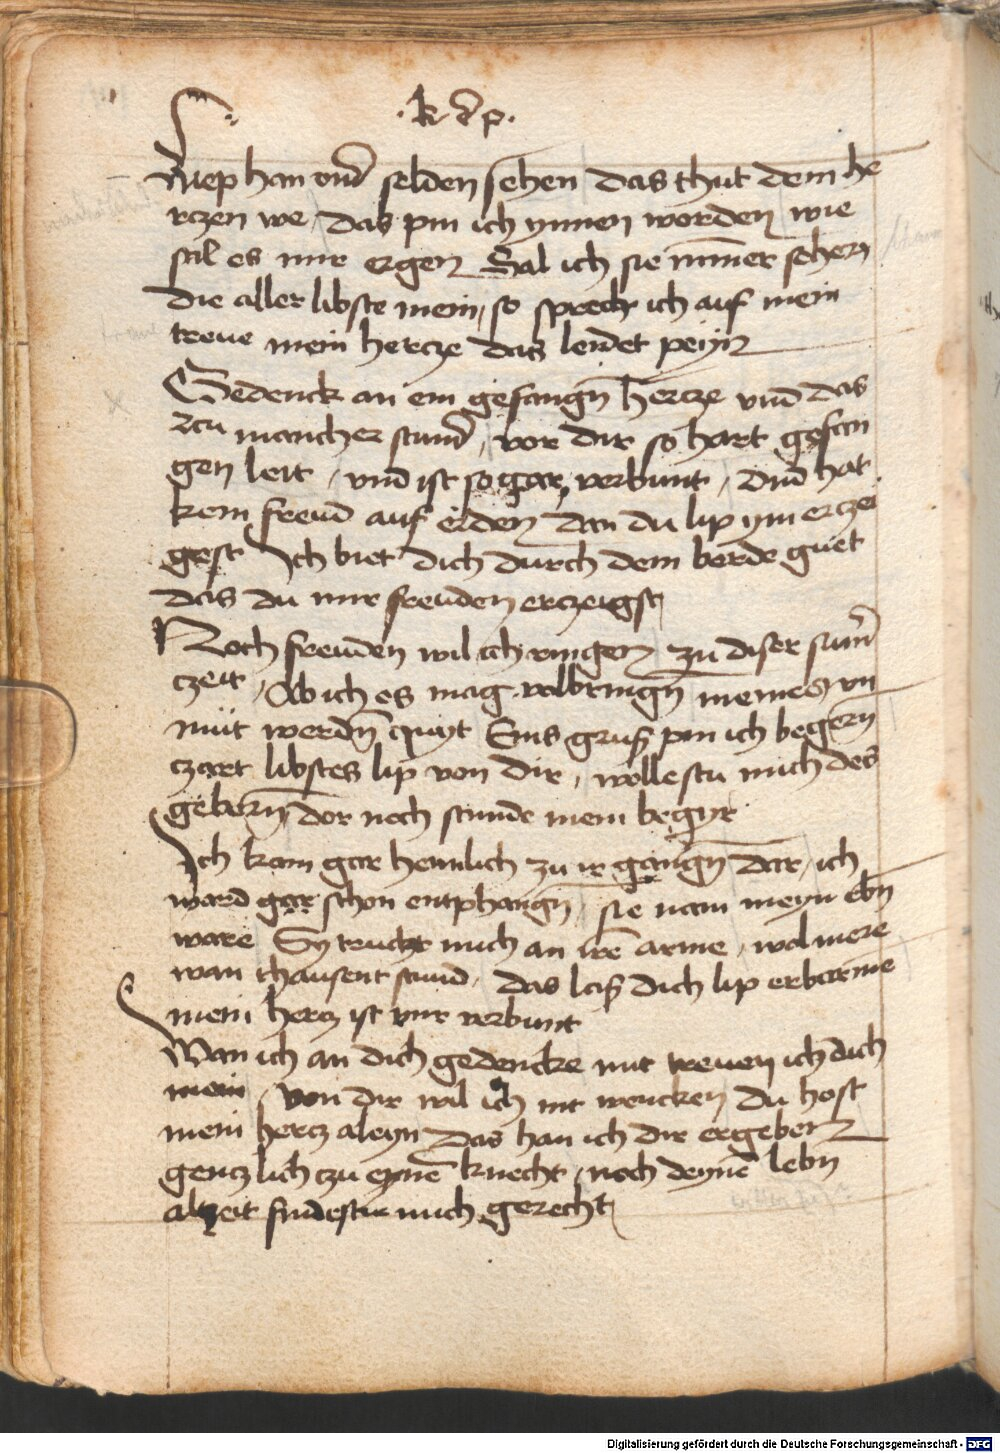 ·k·d·p·
Liep han vnd selden sehen das thut dem he
rczen we, das pin ich ynnen worden wie
sal es mir ergen Sal ich sie nymmer sehen
die aller libste mein, so sprech ich auf mein
treue mein hercze das leidet peyn
Gedenck an ein gefangn hercze vnd das
zcu mancher stund, vor dir so hart gefan
gen leit, vnd ist so gar verbunt, vnd hat
kein freud auf erden dan du lip ym erczei
gest Ich biet dich durch dein werde guet
das du mir freuden erczeigst
Noch freuden wil ich ringen zu diser sumer
czeit, Ab ich es mag volbringn meines vn
mut werdn quyt Eins gruß pin ich begern
czart libstes lip von dir, wollestu mich des
gebern dor noch stunde mein begyr
Ich kam gar heimlich zu ir gangn dar, ich
ward gar schon entphangn, sie nam meyn ebn
ware Sy truckt mich an ire arme, wol mere
wan thausent stund, das laß dich lip erbarme
mein hercz ist mir verbunt
Wan ich an dich gedencke mit treuen ich dich
mein, von dir wil ich nit wencken du host
mein hercz aleyn das han ich dir ergeben
genczlich czu eyne knecht, noch deyne lebn
alczeit findestu mich gerecht
Digitalisierung gefördert durch die Deutsche Forschungsgemeinschaft - DFG